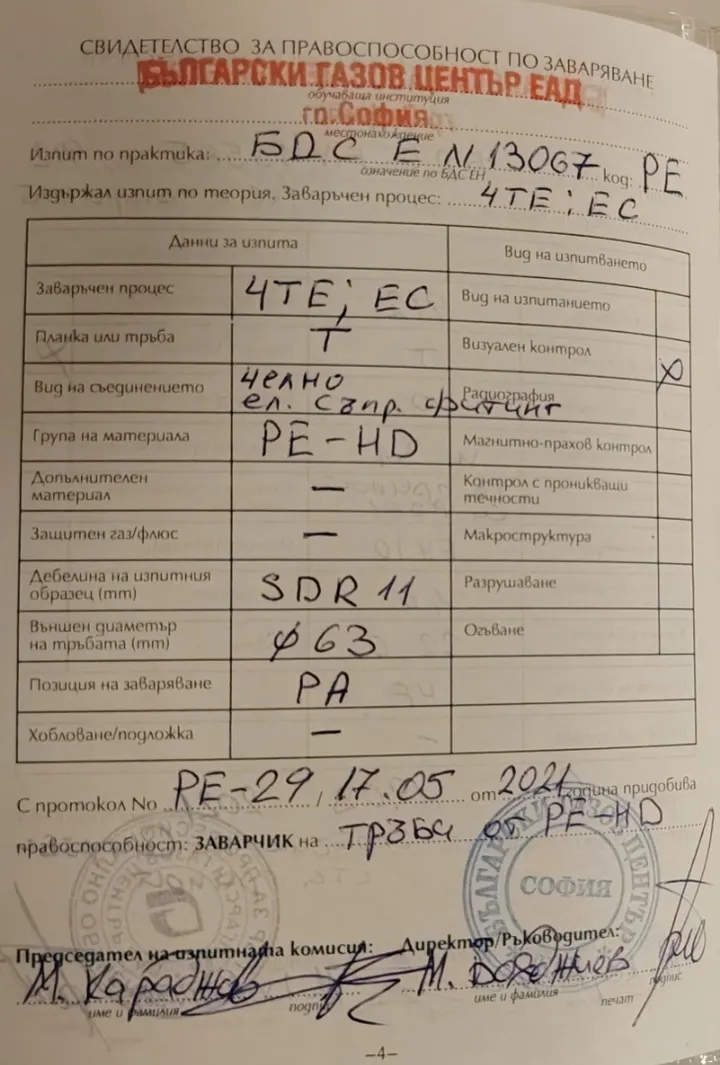 СВИДЕТЕЛСТВО ЗА ПРАВОСПОСОБНОСТ ПО ЗАВАРЯВАНЕ
БЪЛГАРСКИ ГАЗОВ ЦЕНТЪР ЕАД
обучаваща институция
гр. София
местонахождение
Изпит по практика: БДС EN 13067 код: PE
означение по БДС EN
Издържал изпит по теория. Заваръчен процес: ЧТЕ; ЕС
Данни за изпита Вид на изпитването
Заваръчен процес ЧТЕ; ЕС Вид на изпитанието
Планка или тръба Т Визуален контрол X
Вид на съединението челно Радиография
ел. съпр. фитинг
Група на материала PE-HD Магнитно-прахов контрол
Допълнителен материал — Контрол с проникващи течности
Защитен газ/флюс — Макроструктура
Дебелина на изпитния образец (mm) SDR 11 Разрушаване
Външен диаметър на тръбата (mm) φ 63 Огъване
Позиция на заваряване PA
Хобловане/подложка —
С протокол No PE-29 / 17.05 от 2021 година придобива
правоспособност: ЗАВАРЧИК на тръби от PE-HD
СОФИЯ
Председател на изпитната комисия: Директор/Ръководител:
М. М.
име и фамилия подпис име и фамилия печат подпис
–4–